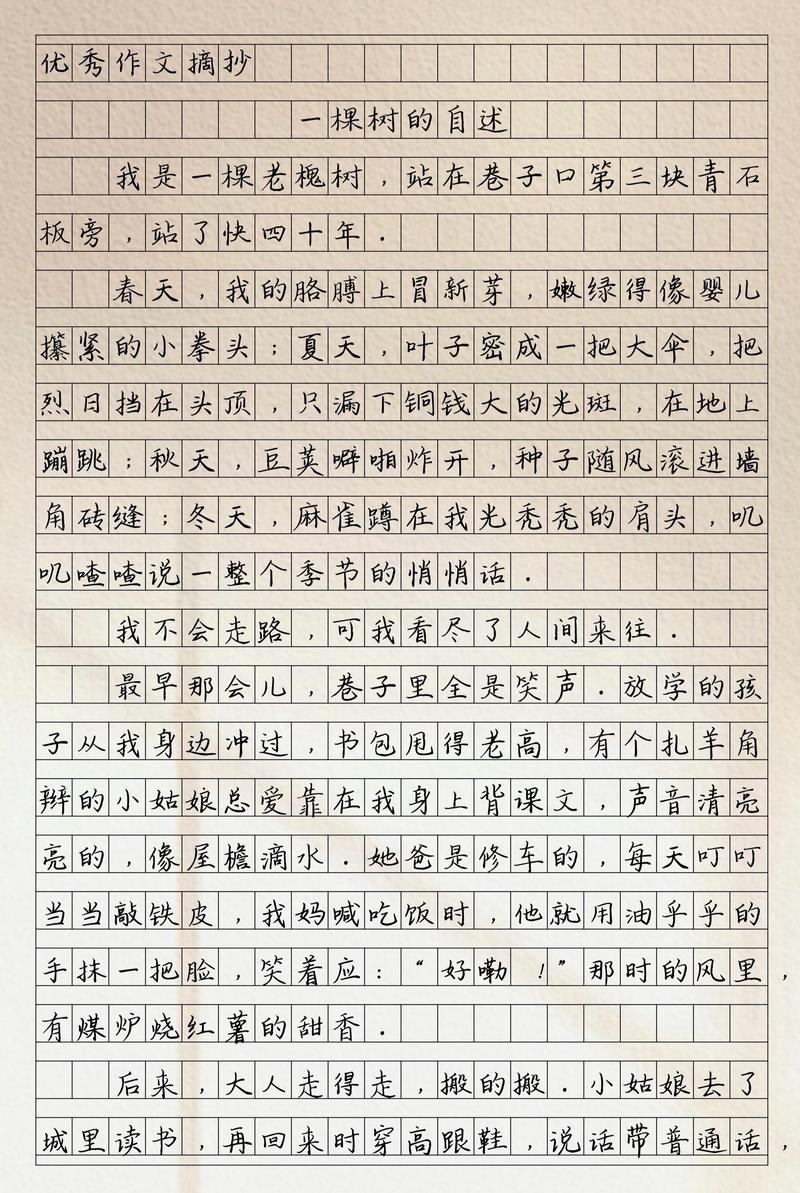 优秀作文摘抄
一棵树的自述
我是一棵老槐树，站在巷子口第三块青石
板旁，站了快四十年．
春天，我的胳膊上冒新芽，嫩绿得像婴儿
攥紧的小拳头；夏天，叶子密成一把大伞，把
烈日挡在头顶，只漏下铜钱大的光斑，在地上
蹦跳；秋天，豆荚噼啪炸开，种子随风滚进墙
角砖缝；冬天，麻雀蹲在我光秃秃的肩头，叽
叽喳喳说一整个季节的悄悄话．
我不会走路，可我看尽了人间来往．
最早那会儿，巷子里全是笑声．放学的孩
子从我身边冲过，书包甩得老高，有个扎羊角
辫的小姑娘总爱靠在我身上背课文，声音清亮
亮的，像屋檐滴水．她爸是修车的，每天叮叮
当当敲铁皮，我妈喊吃饭时，他就用油乎乎的
手抹一把脸，笑着应：“好嘞！”那时的风里，
有煤炉烧红薯的甜香．
后来，大人走得走，搬的搬．小姑娘去了
城里读书，再回来时穿高跟鞋，说话带普通话，